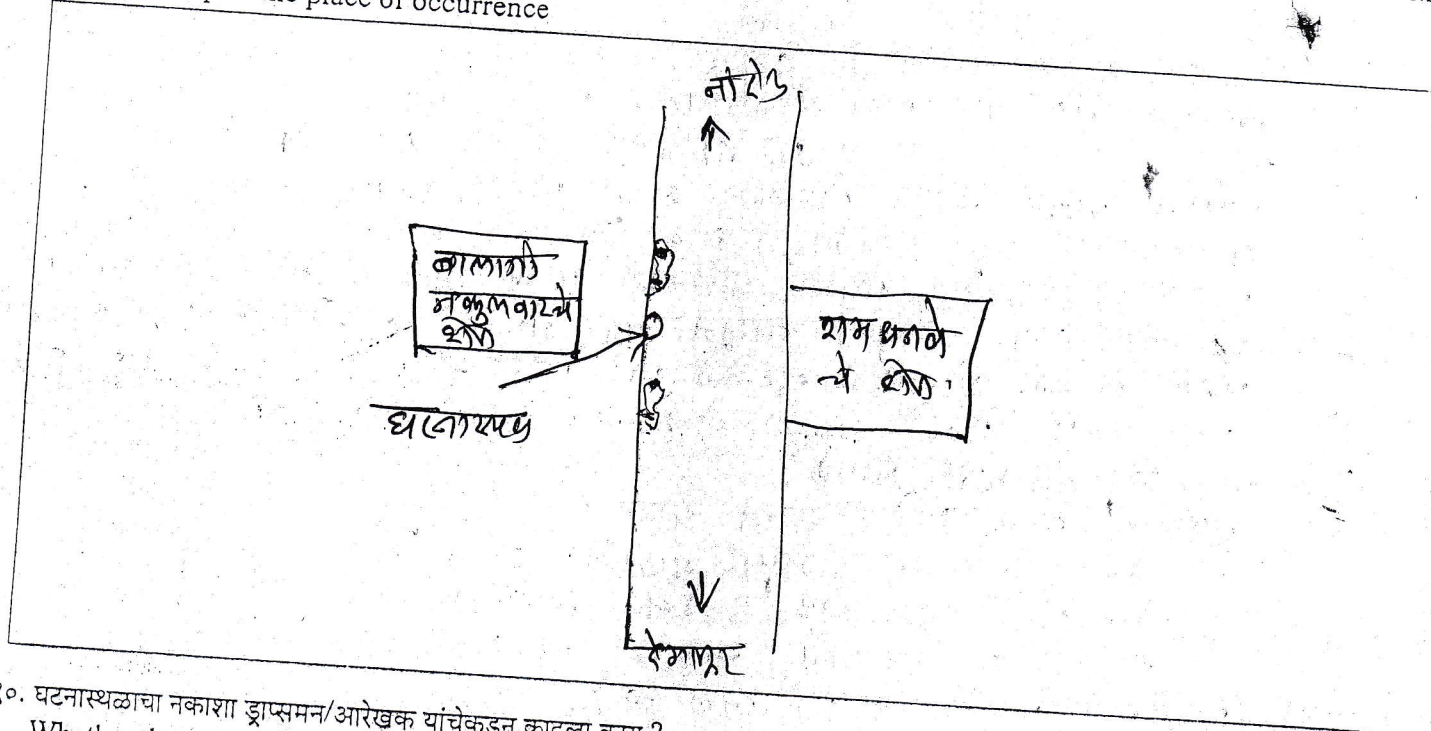 place of occurrence
नांदेड
बालाजी
नकुलवारचे
शेत
राम धनवे
चे शेत.
घटनास्थळ
देगलूर
१०. घटनास्थळाचा नकाशा ड्राप्समन/आरेखक यांचेकडून काढला काय ?